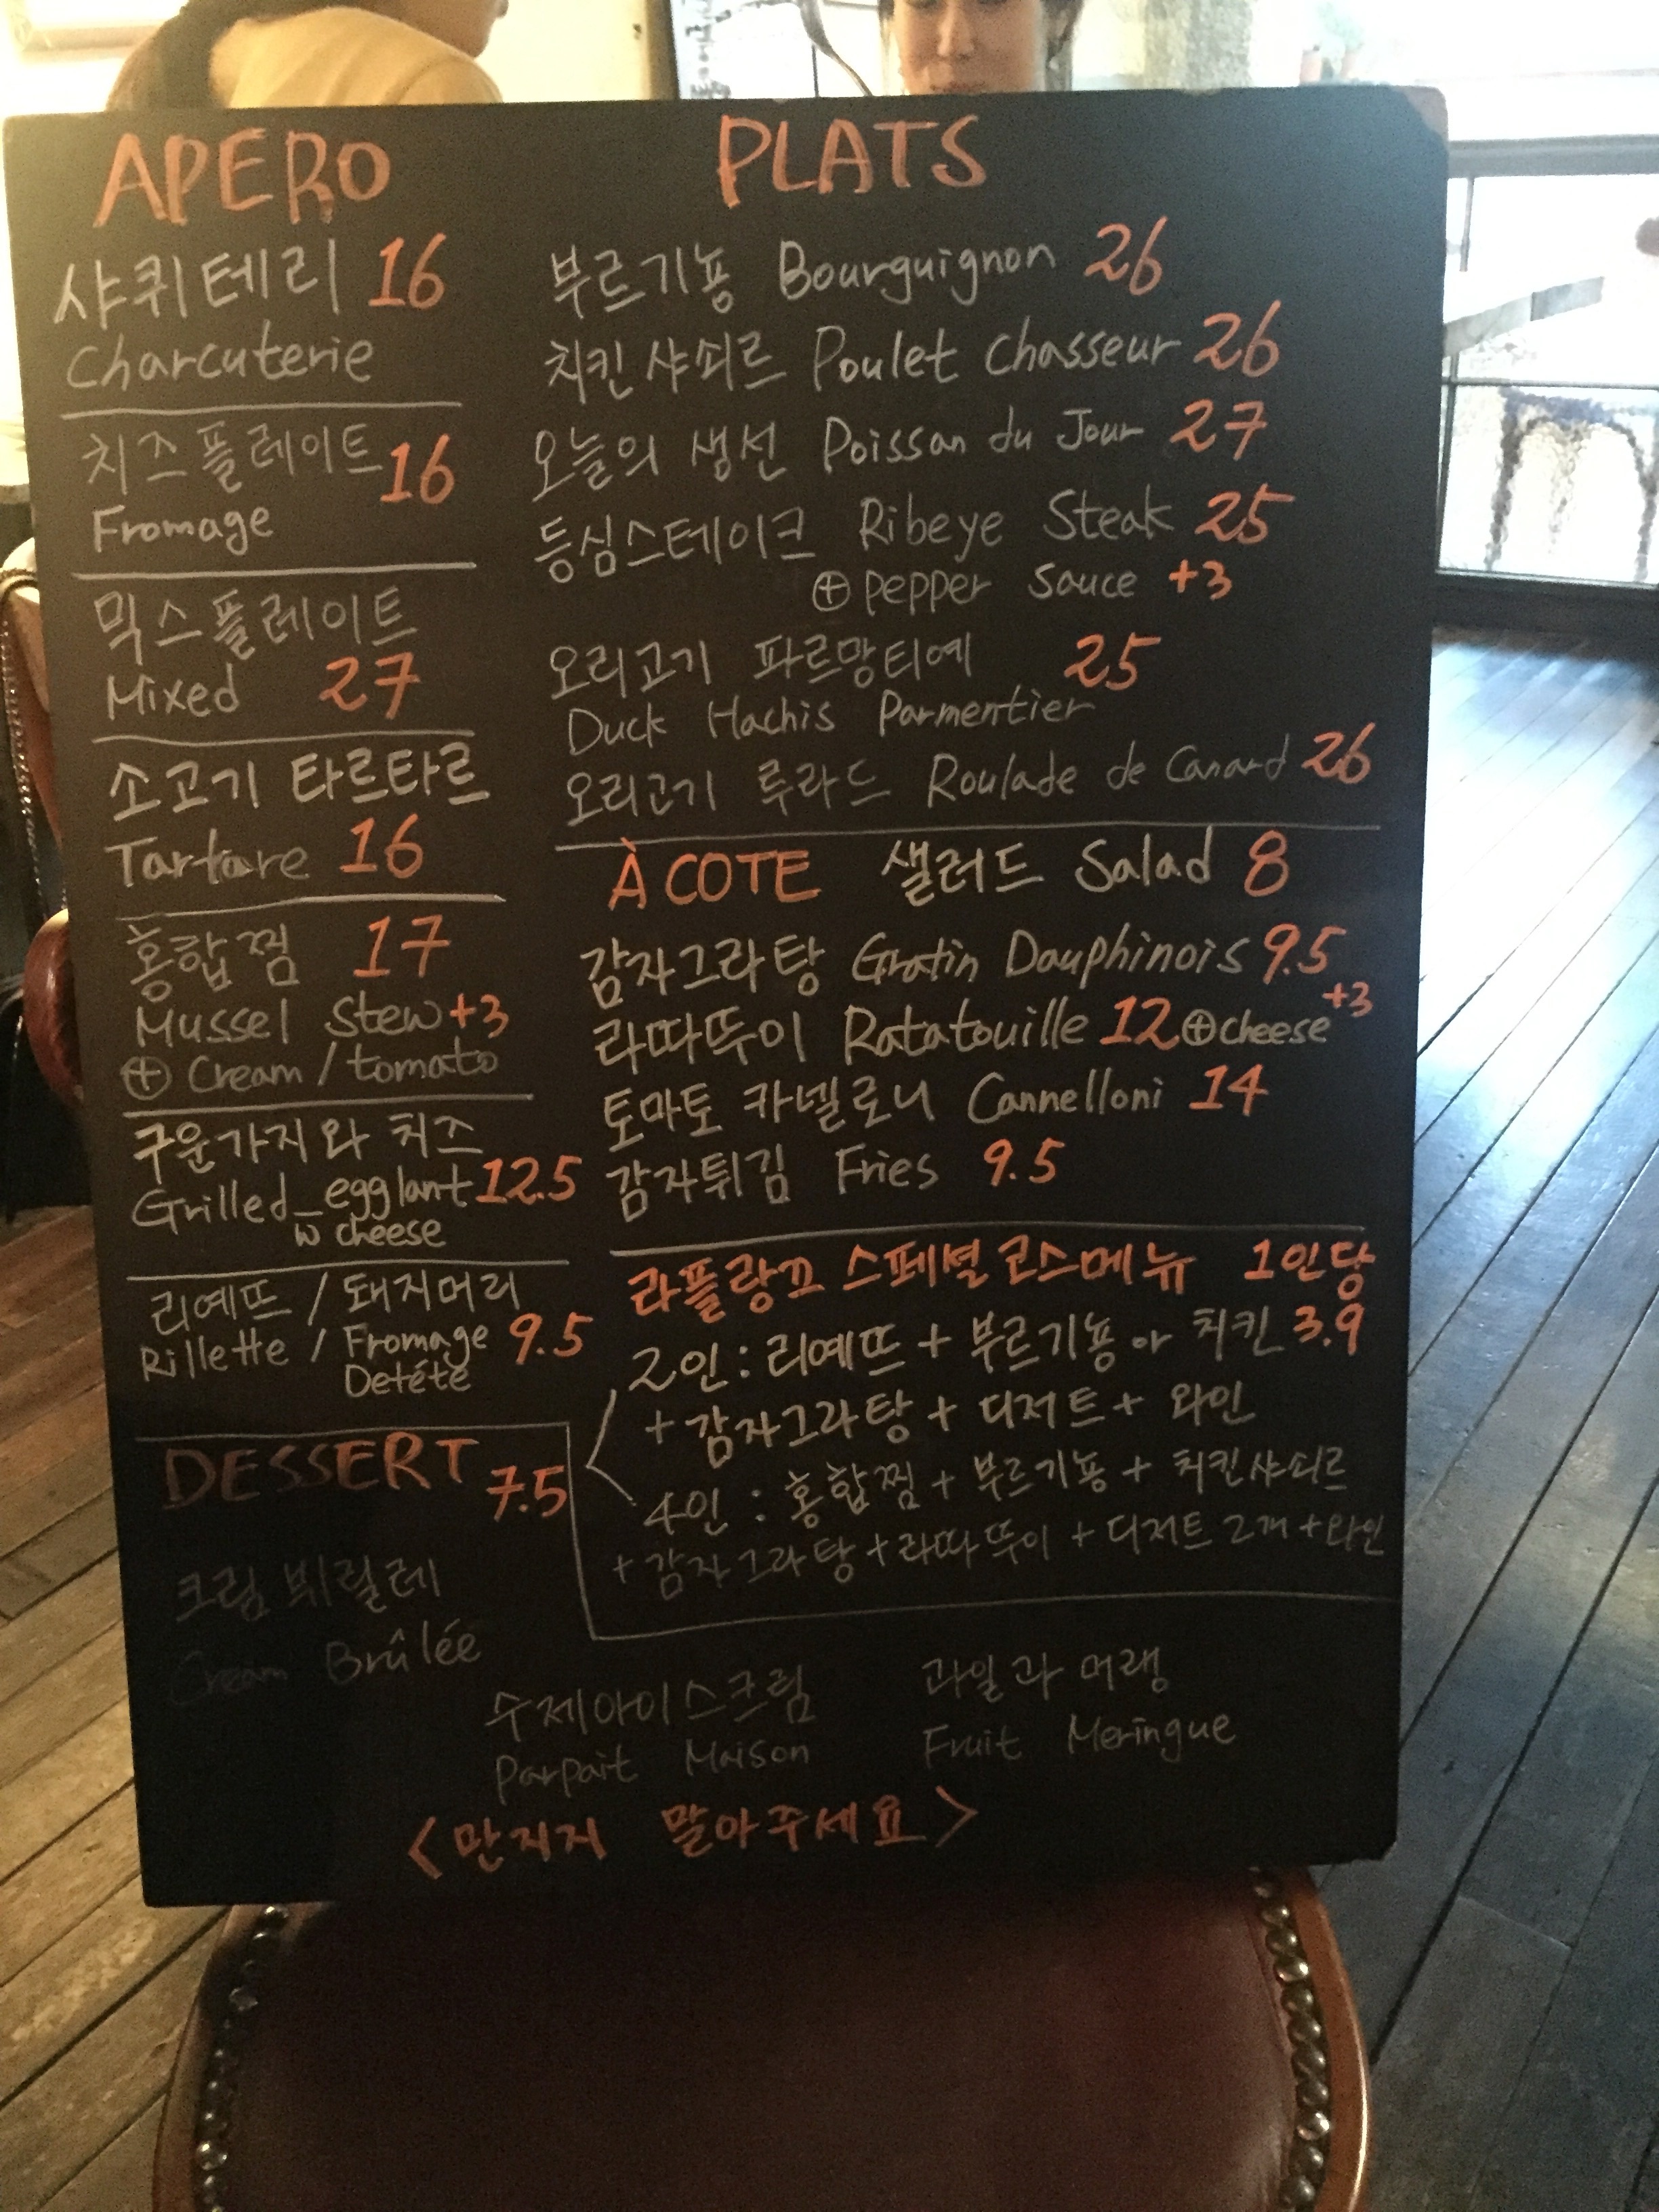 APERO
샤퀴테리 16
Charcuterie
치즈플레이트 16
Fromage
믹스플레이트
Mixed 27
소고기 타르타르
Tartare 16
홍합찜 17
Mussel Stew +3
⊕ Cream / tomato
구운가지와 치즈
Grilled eggplant 12.5
w cheese
리예뜨 / 돼지머리
Rillette / Fromage 9.5
Detéte
PLATS
부르기뇽 Bourguignon 26
치킨샤쇠르 Poulet Chasseur 26
오늘의 생선 Poisson du Jour 27
등심스테이크 Ribeye Steak 25
⊕ pepper Sauce +3
오리고기 파르망티에 25
Duck Hachis Parmentier
오리고기 루라드 Roulade de Canard 26
À COTE 샐러드 Salad 8
감자그라탕 Gratin Dauphinois 9.5
라따뚜이 Ratatouille 12 ⊕ cheese +3
토마토 카넬로니 Cannelloni 14
감자튀김 Fries 9.5
라플랑끄 스페셜 코스메뉴 1인당
2인 : 리예뜨 + 부르기뇽 or 치킨 3.9
+ 감자그라탕 + 디저트 + 와인
4인 : 홍합찜 + 부르기뇽 + 치킨샤쇠르
+ 감자그라탕 + 라따뚜이 + 디저트 2개 + 와인
DESSERT 7.5
크림 뷔릴레
Cream Brûlée
수제아이스크림
Parpait Maison
과일과 머랭
Fruit Meringue
<만지지 말아주세요>